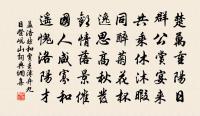 楚萬重陽日
群公賞宴來
共乘休沐暇
同醉菊花杯
逸思高秋發
歡情落景催
國人咸寡和
遙愧洛陽才
孟浩然和賈主簿弁九
日登峴山